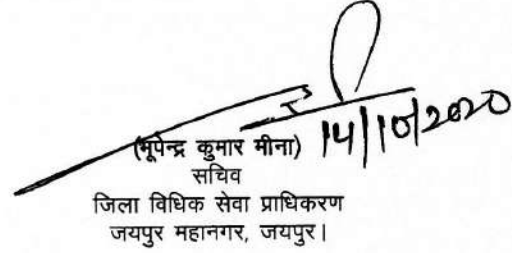 (भूपेन्द्र कुमार मीना) 14/10/2020
सचिव
जिला विधिक सेवा प्राधिकरण
जयपुर महानगर, जयपुर।